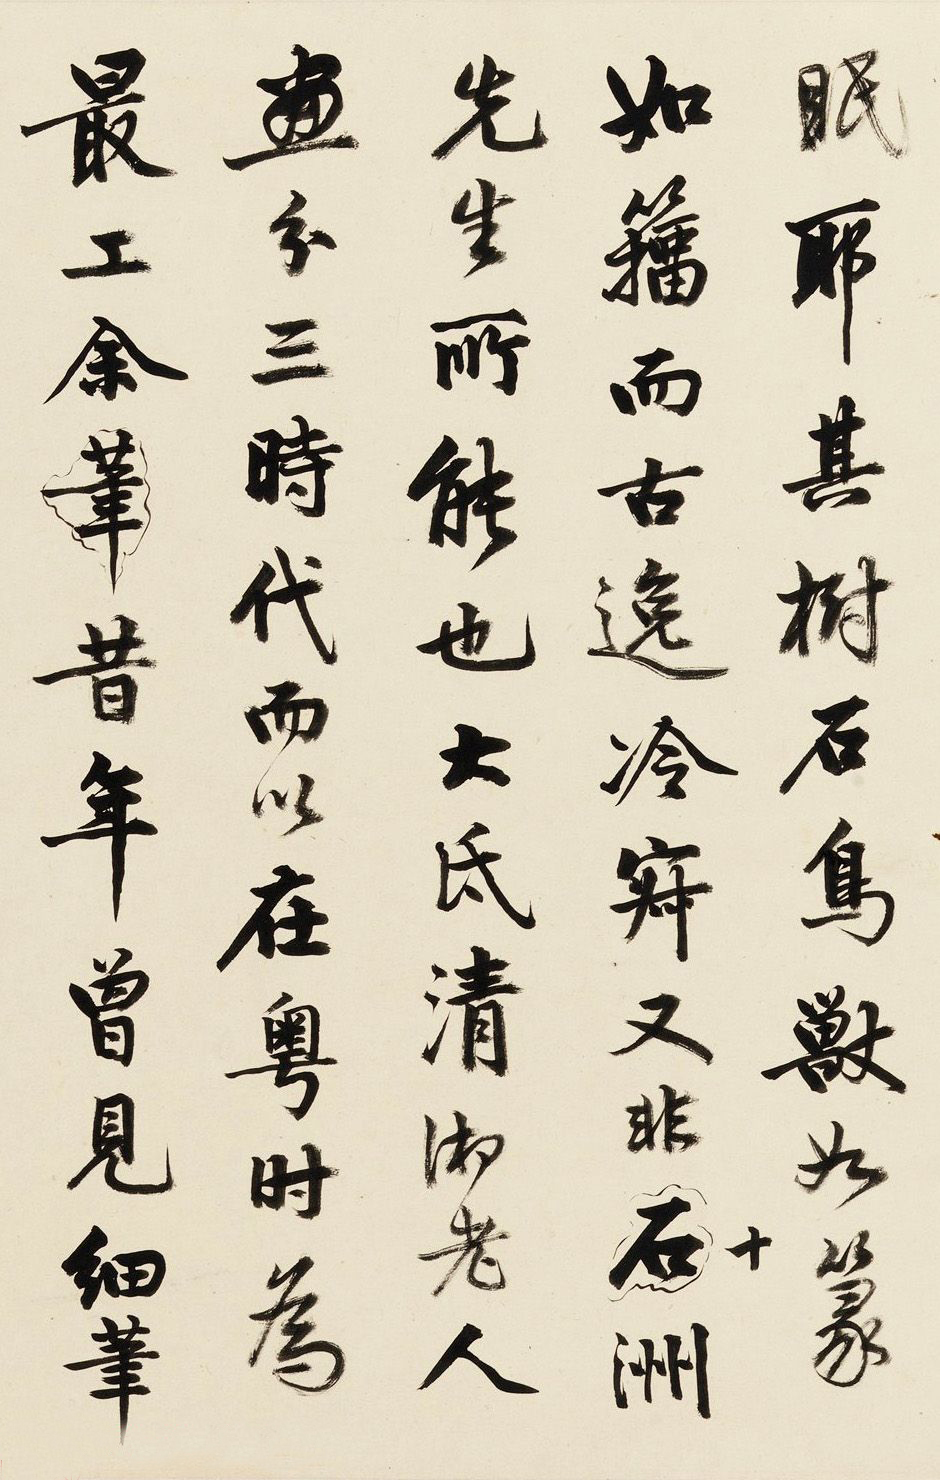 眠耶其樹石鳥獸如篆
如籀而古逸冷穽又非石十洲
先生所能也大氐清湘老人
畫分三時代而以在粵时為
最工余筆昔年曾見細筆